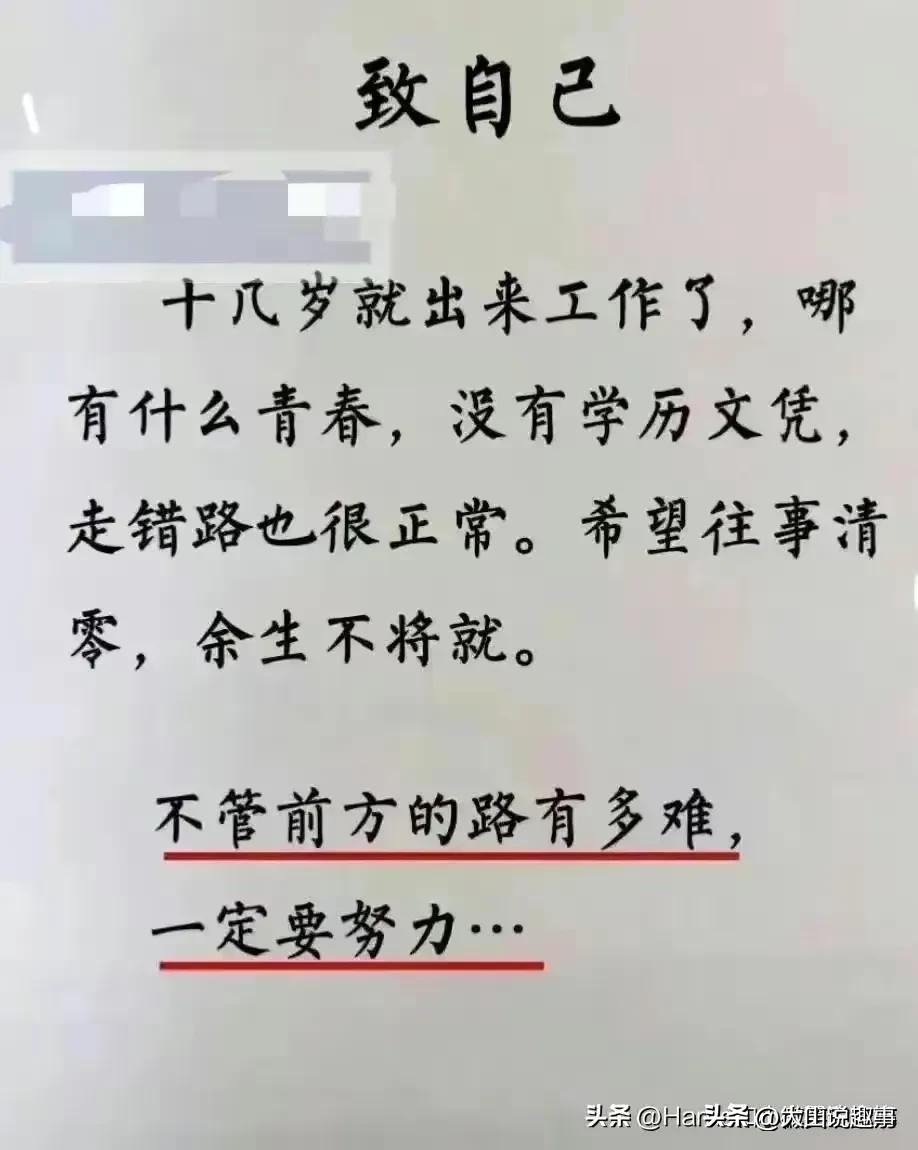 致自己
十几岁就出来工作了，哪
有什么青春，没有学历文凭，
走错路也很正常。希望往事清
零，余生不将就。
不管前方的路有多难，
一定要努力…
头条 @Har 头条 @大田说趣事